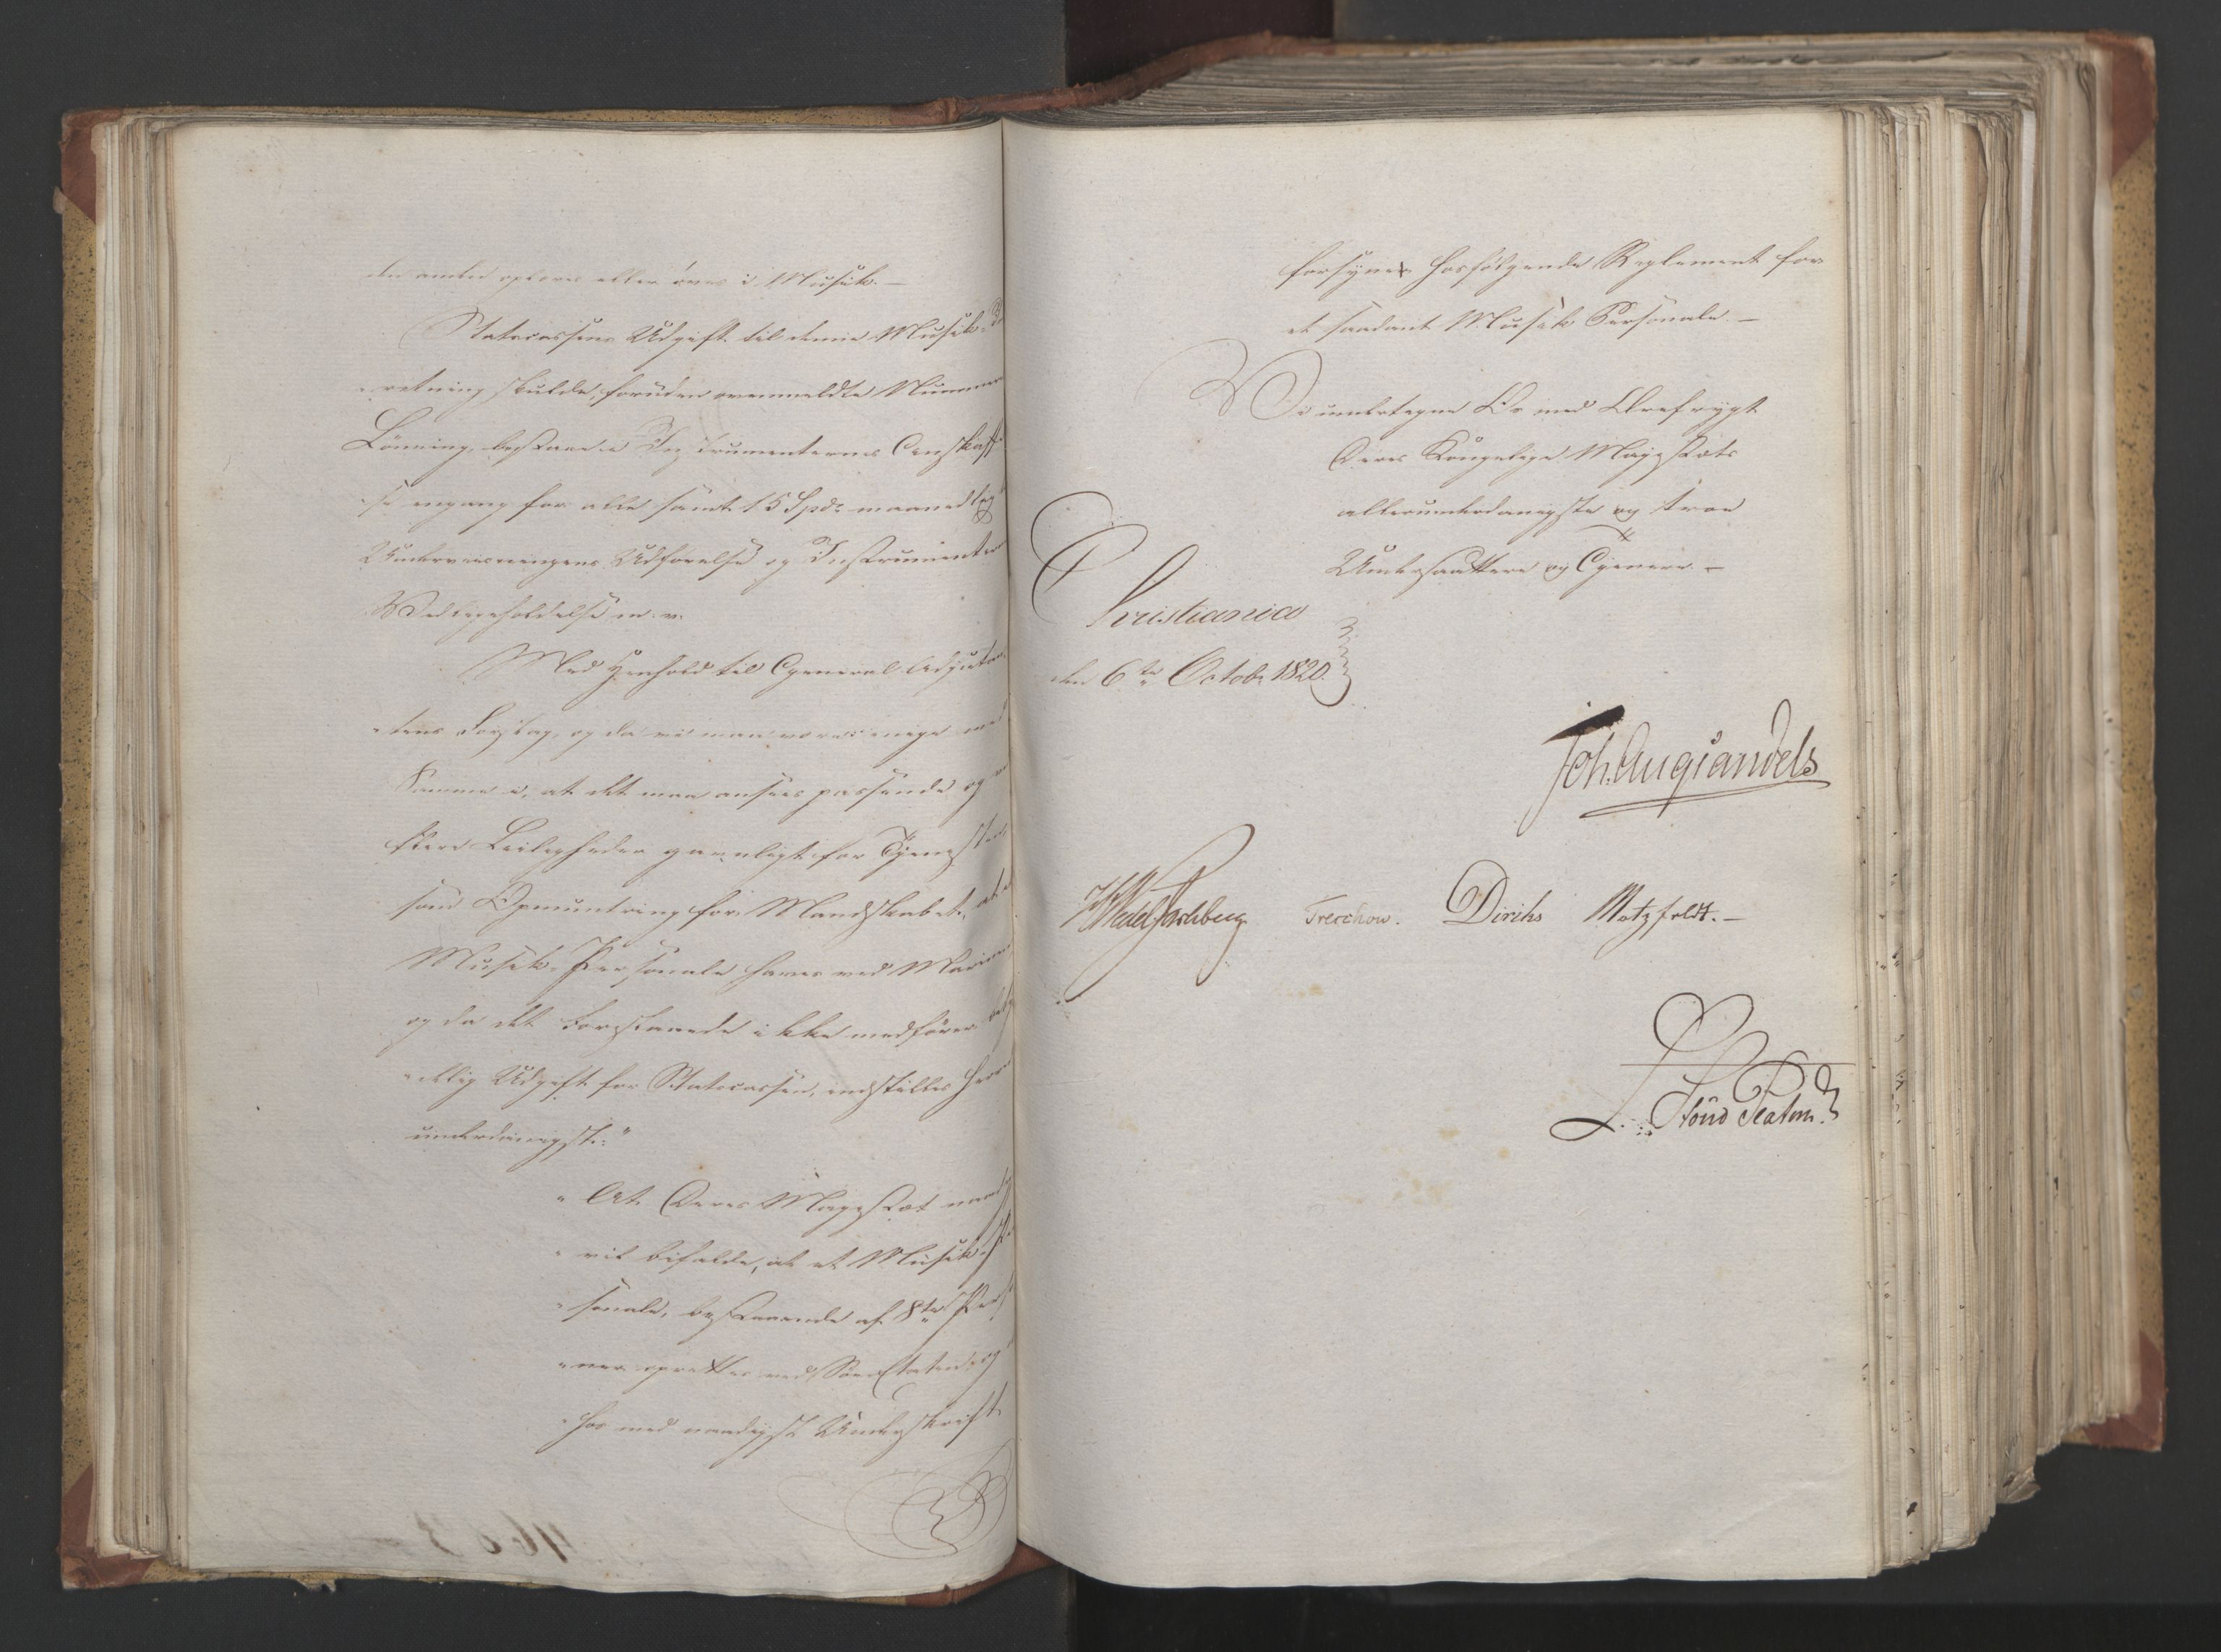 den anden oplæres eller øves i Musik. —
Statscassens Udgift til denne Musik-Ind
retning skulde, foruden ovenmeldte Nummer
Lönning, bestaae i Instrumenternes Anskaffel
se engang for alle samt 15 Spd. maanedlig
Underviisningens Udförelse og Instrumenter
Vedligeholdelse m. v.
Med Henhold til General Adjutan
tens Forslag, og da vi maae være enige med
Samme i, at det maa ansees passende og ved
flere Leiligheder gavnligt for Tjenesten
som Opmuntring for Mandskabet, at
Musik-Personale haves ved Marinen,
og da det Foreslaaede ikke medförer bety
delig Udgift for Statscassen, indstilles her
underdanigst:
" At Deres Majestæt naadigst
" vil bifalde, at et Musik-Per
" sonale, bestaaende af 8te Perso
" ner oprettes ved Söe-Etaten, og
" hos med naadigst Underskrift
forsynes hosfølgende Reglement for
et saadant Musik Personale. —
Vi undertegne Os med Ærefrygt
Deres Kongelige Majestæts
allerunderdanigste og troe
Undersaattere og Tjenere. —
Christiania
den 6te Octobr 1820.
Joh. Aug Sandels
HWedel Jarlsberg Treschow. Diriks Motzfeldt. —